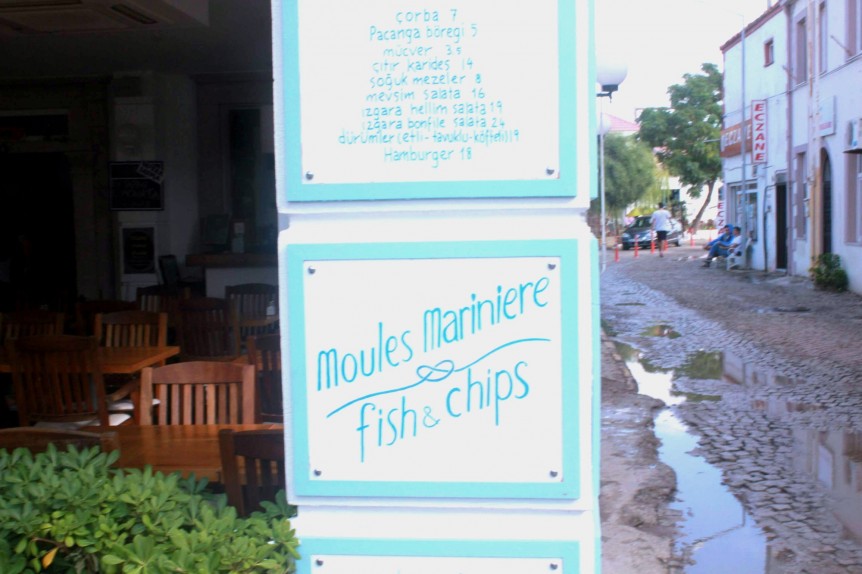 çorba 7
Pacanga böregi 5
mücver 3.5
çıtır karides 14
soğuk mezeler 8
mevsim salata 16
ızgara hellim salata 19
ızgara bonfile salata 24
dürümler (etli-tavuklu-köfteli) 19
Hamburger 18
Moules Mariniere
fish & chips
ECZANE